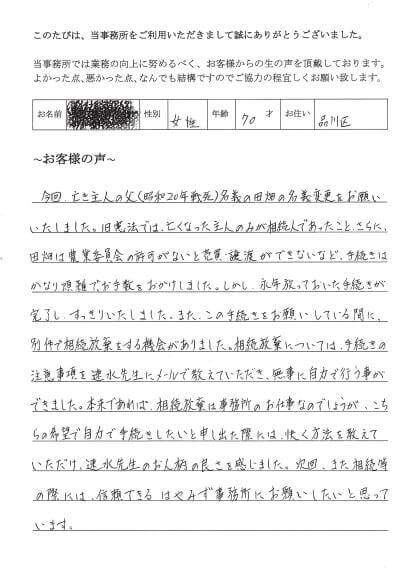 このたびは、当事務所をご利用いただきまして誠にありがとうございました。
当事務所では業務の向上に努めるべく、お客様からの生の声を頂戴しております。
よかった点、悪かった点、なんでも結構ですのでご協力の程宜しくお願い致します。
お名前 性別 女性 年齢 70 才 お住い 品川区
~お客様の声~
今回、亡き主人の父(昭和20年戦死)名義の田畑の名義変更をお願い
いたしました。旧憲法では、亡くなった主人のみが相続人であったこと、さらに、
田畑は農業委員会の許可がないと売買・譲渡ができないなど、手続きは
かなり煩雑でお手数をおかけしました。しかし、永年放っておいた手続きが
完了し、すっきりいたしました。また、この手続きをお願いしている間に、
別件で相続放棄をする機会がありました。相続放棄については、手続きの
注意事項を速水先生にメールで教えていただき、無事に自力で行う事が
できました。本来であれば、相続放棄は事務所のお仕事なのでしょうが、こち
らの希望で自力で手続きしたいと申し出た際には、快く方法を教えて
いただけ、速水先生のお人柄の良さを感じました。次回、また相続等
の際には、信頼できる はやみず事務所にお願いしたいと思って
います。